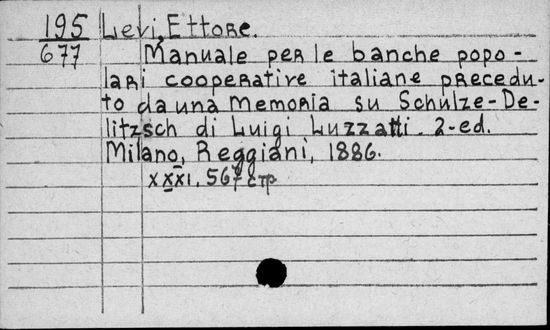 195 Levi, Ettore.
677 Manuale per le banche popo-
lari cooperative italiane precedu-
to da una memoria su Schulze-De-
litzsch di Luigi Luzzatti. 2-ed.
Milano, Reggiani, 1886.
XXXI, 567 стр